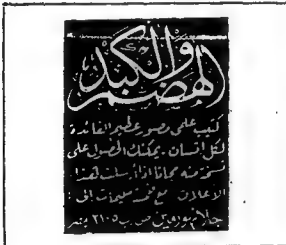 الهضم والكبد
كتيب علمي مصور عظيم الفائدة
لكل انسان . يمكنك الحصول على
نسخة منه مجانا اذا ارسلت هذا
الاعلان مع خمسة مليمات الى :
جلاو يوروپين ص . ب ٢١٠٥ مصر